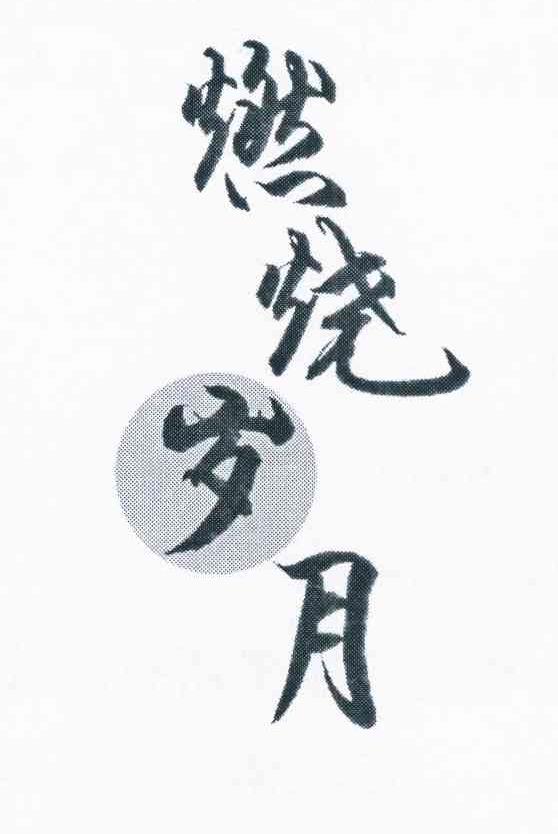 燃烧岁月